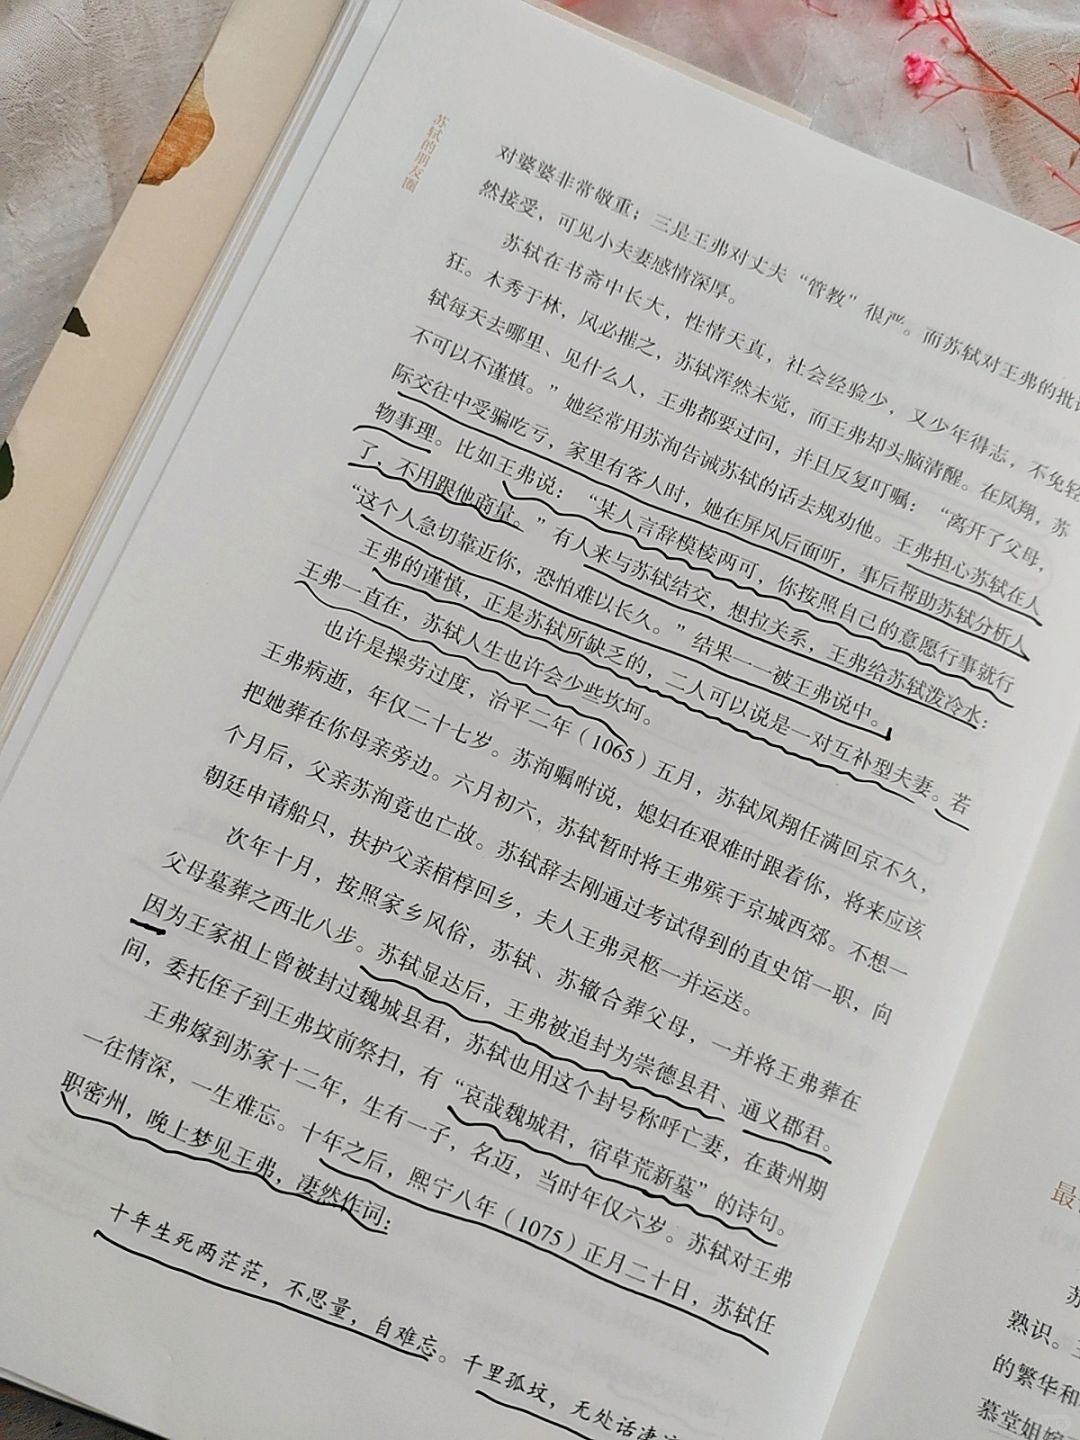 苏轼的朋友圈
对婆婆非常敬重；三是王弗对丈夫“管教”很严。而苏轼对王弗的批
然接受，可见小夫妻感情深厚。
苏轼在书斋中长大，性情天真，社会经验少，又少年得志，不免轻
狂。木秀于林，风必摧之，苏轼浑然未觉，而王弗却头脑清醒。在凤翔，苏
轼每天去哪里、见什么人，王弗都要过问，并且反复叮嘱：“离开了父母，
不可以不谨慎。”她经常用苏洵告诫苏轼的话去规劝他。王弗担心苏轼在人
际交往中受骗吃亏，家里有客人时，她在屏风后面听，事后帮助苏轼分析人
物事理。比如王弗说：“某人言辞模棱两可，你按照自己的意愿行事就行
了，不用跟他商量。”有人来与苏轼结交，想拉关系，王弗给苏轼泼冷水：
“这个人急切靠近你，恐怕难以长久。”结果一一被王弗说中。
王弗的谨慎，正是苏轼所缺乏的，二人可以说是一对互补型夫妻。若
王弗一直在，苏轼人生也许会少些坎坷。
也许是操劳过度，治平二年（1065）五月，苏轼凤翔任满回京不久，
王弗病逝，年仅二十七岁。苏洵嘱咐说，媳妇在艰难时跟着你，将来应该
把她葬在你母亲旁边。六月初六，苏轼暂时将王弗殡于京城西郊。不想一
个月后，父亲苏洵竟也亡故。苏轼辞去刚通过考试得到的直史馆一职，向
朝廷申请船只，扶护父亲棺椁回乡，夫人王弗灵柩一并运送。
次年十月，按照家乡风俗，苏轼、苏辙合葬父母，一并将王弗葬在
父母墓葬之西北八步。苏轼显达后，王弗被追封为崇德县君、通义郡君。
因为王家祖上曾被封过魏城县君，苏轼也用这个封号称呼亡妻，在黄州期
间，委托侄子到王弗坟前祭扫，有“哀哉魏城君，宿草荒新墓”的诗句。
王弗嫁到苏家十二年，生有一子，名迈，当时年仅六岁。苏轼对王弗
一往情深，一生难忘。十年之后，熙宁八年（1075）正月二十日，苏轼任
职密州，晚上梦见王弗，凄然作词：
十年生死两茫茫，不思量，自难忘。千里孤坟，无处话凄
最
苏
熟识。王
的繁华和
慕堂姐嫁